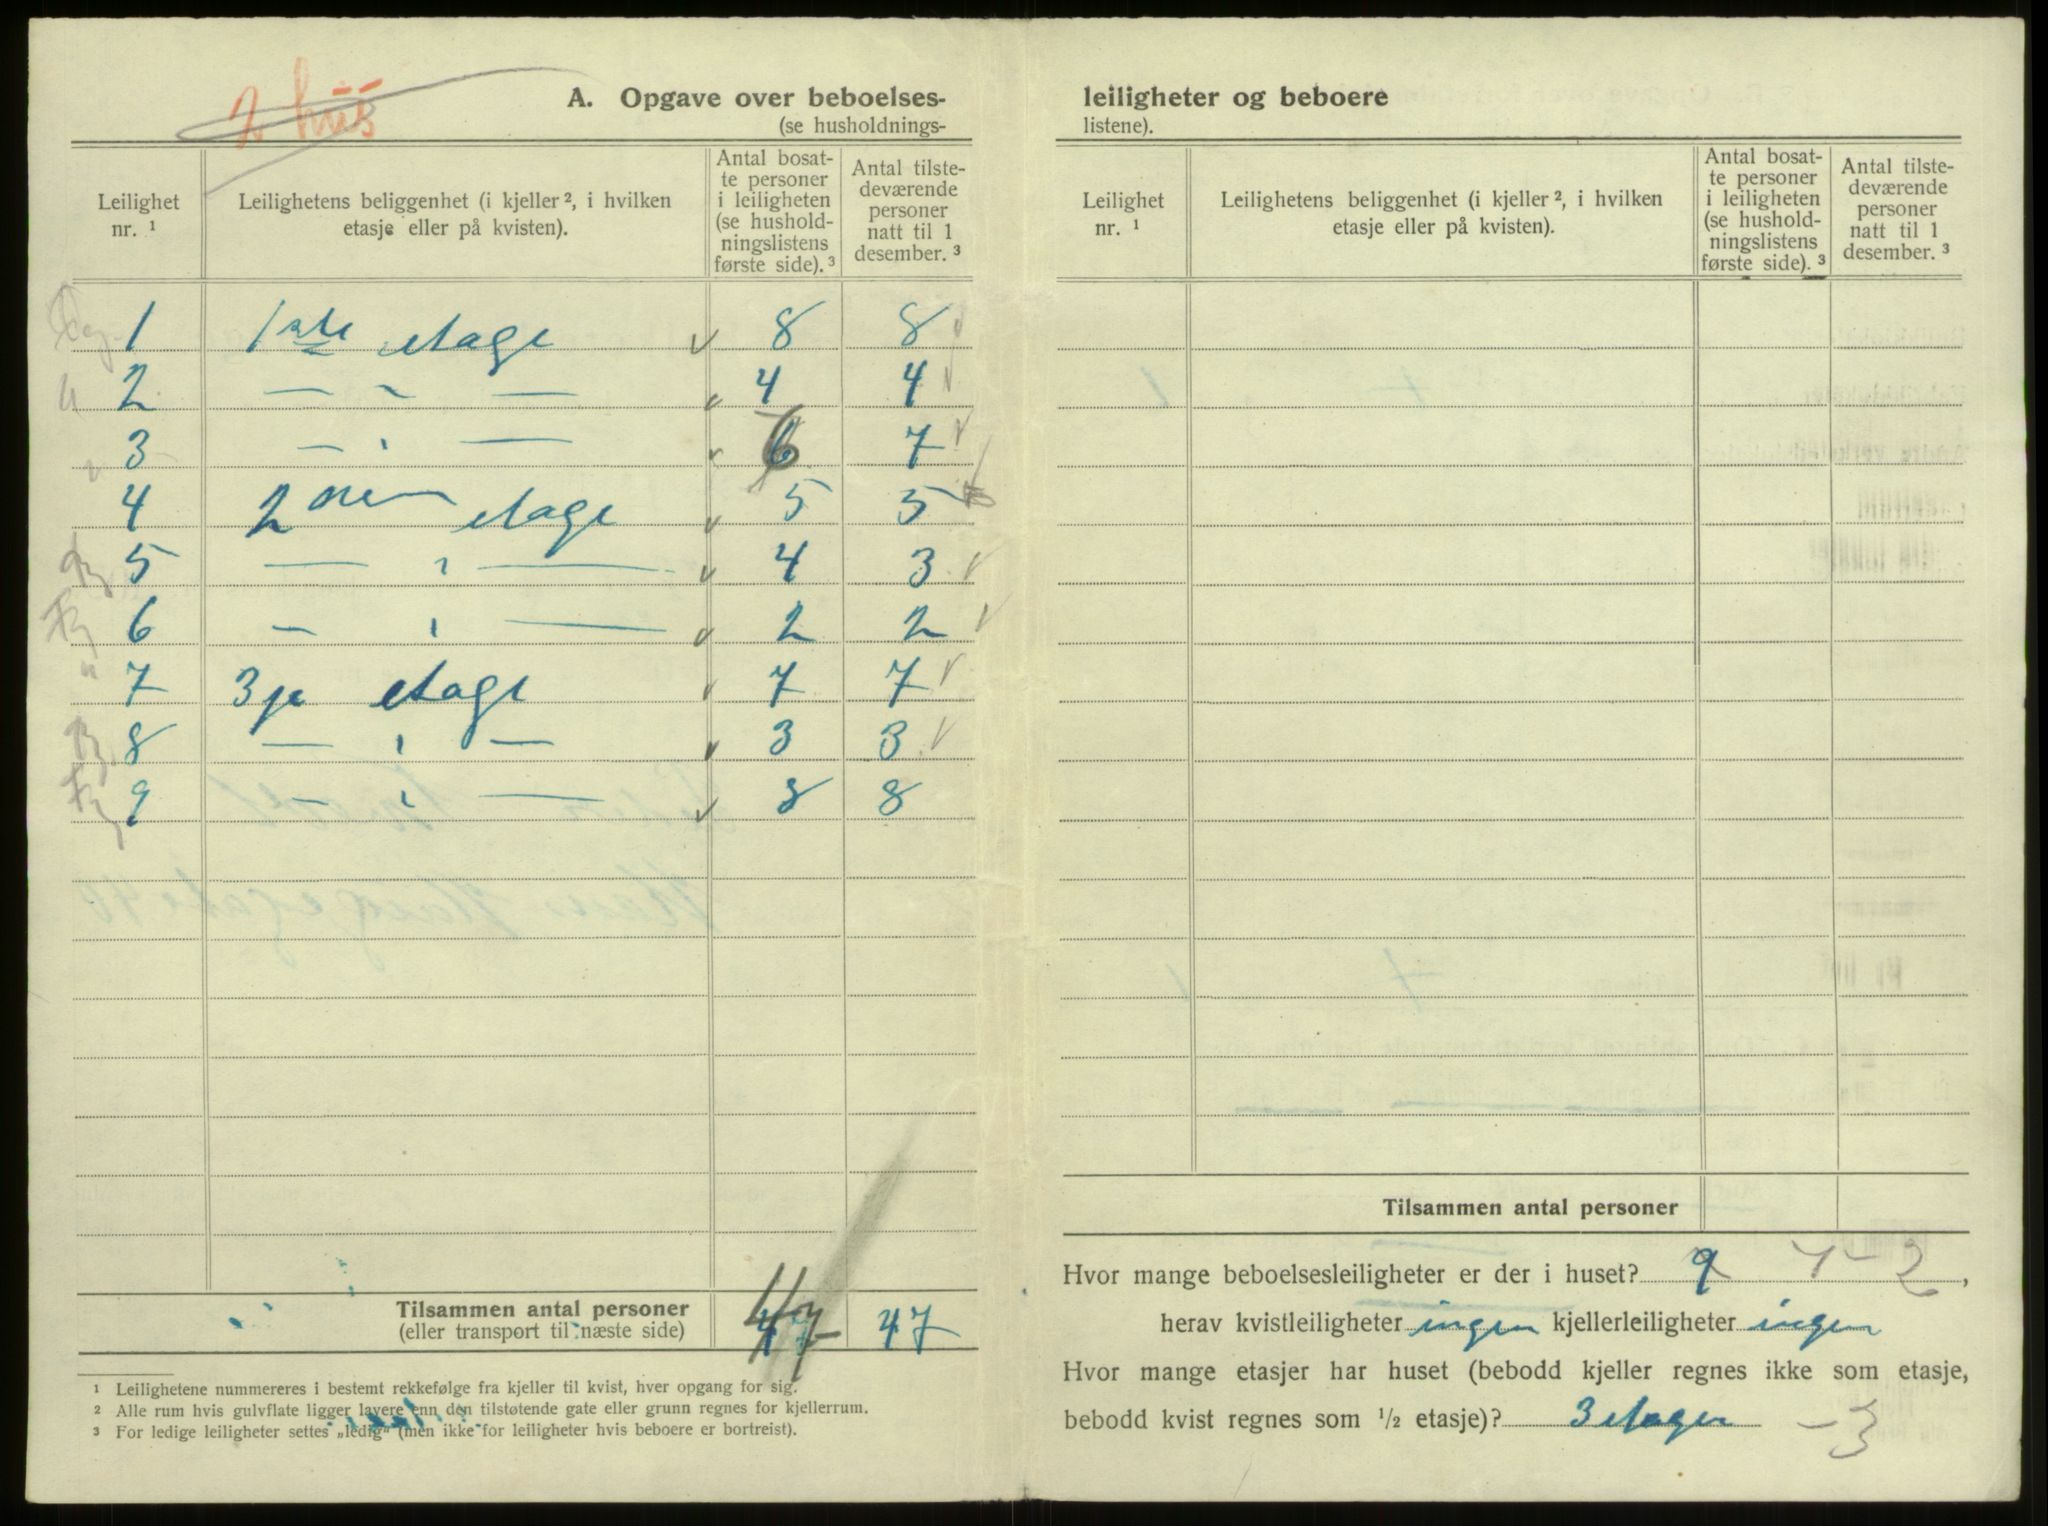 2 hus
A. Opgave over beboelses-
(se husholdnings-
Leilighet nr. ¹
Leilighetens beliggenhet (i kjeller ², i hvilken etasje eller på kvisten).
Antal bosat-te personer i leiligheten (se hushold-ningslistens første side). ³
Antal tilste-deværende personer natt til 1 desember. ³
1 1ste etage 8 8
2 — " — 4 4
3 — " — 6 7
4 2den etage 5 5
5 — " — 4 3
6 — " — 2 2
7 3je etage 7 7
8 — " — 3 3
9 — " — 8 8
Tilsammen antal personer 47 47
(eller transport til næste side)
¹ Leilighetene nummereres i bestemt rekkefølge fra kjeller til kvist, hver opgang for sig.
² Alle rum hvis gulvflate ligger lavere enn den tilstøtende gate eller grunn regnes for kjellerrum.
³ For ledige leiligheter settes „ledig" (men ikke for leiligheter hvis beboere er bortreist).
leiligheter og beboere
listene).
Leilighet nr. ¹
Leilighetens beliggenhet (i kjeller ², i hvilken etasje eller på kvisten).
Antal bosat-te personer i leiligheten (se hushold-ningslistens første side). ³
Antal tilste-deværende personer natt til 1 desember. ³
Tilsammen antal personer
Hvor mange beboelsesleiligheter er der i huset? 9 7 – 2,
herav kvistleiligheter ingen kjellerleiligheter ingen
Hvor mange etasjer har huset (bebodd kjeller regnes ikke som etasje,
bebodd kvist regnes som ½ etasje)? 3 etager – 3